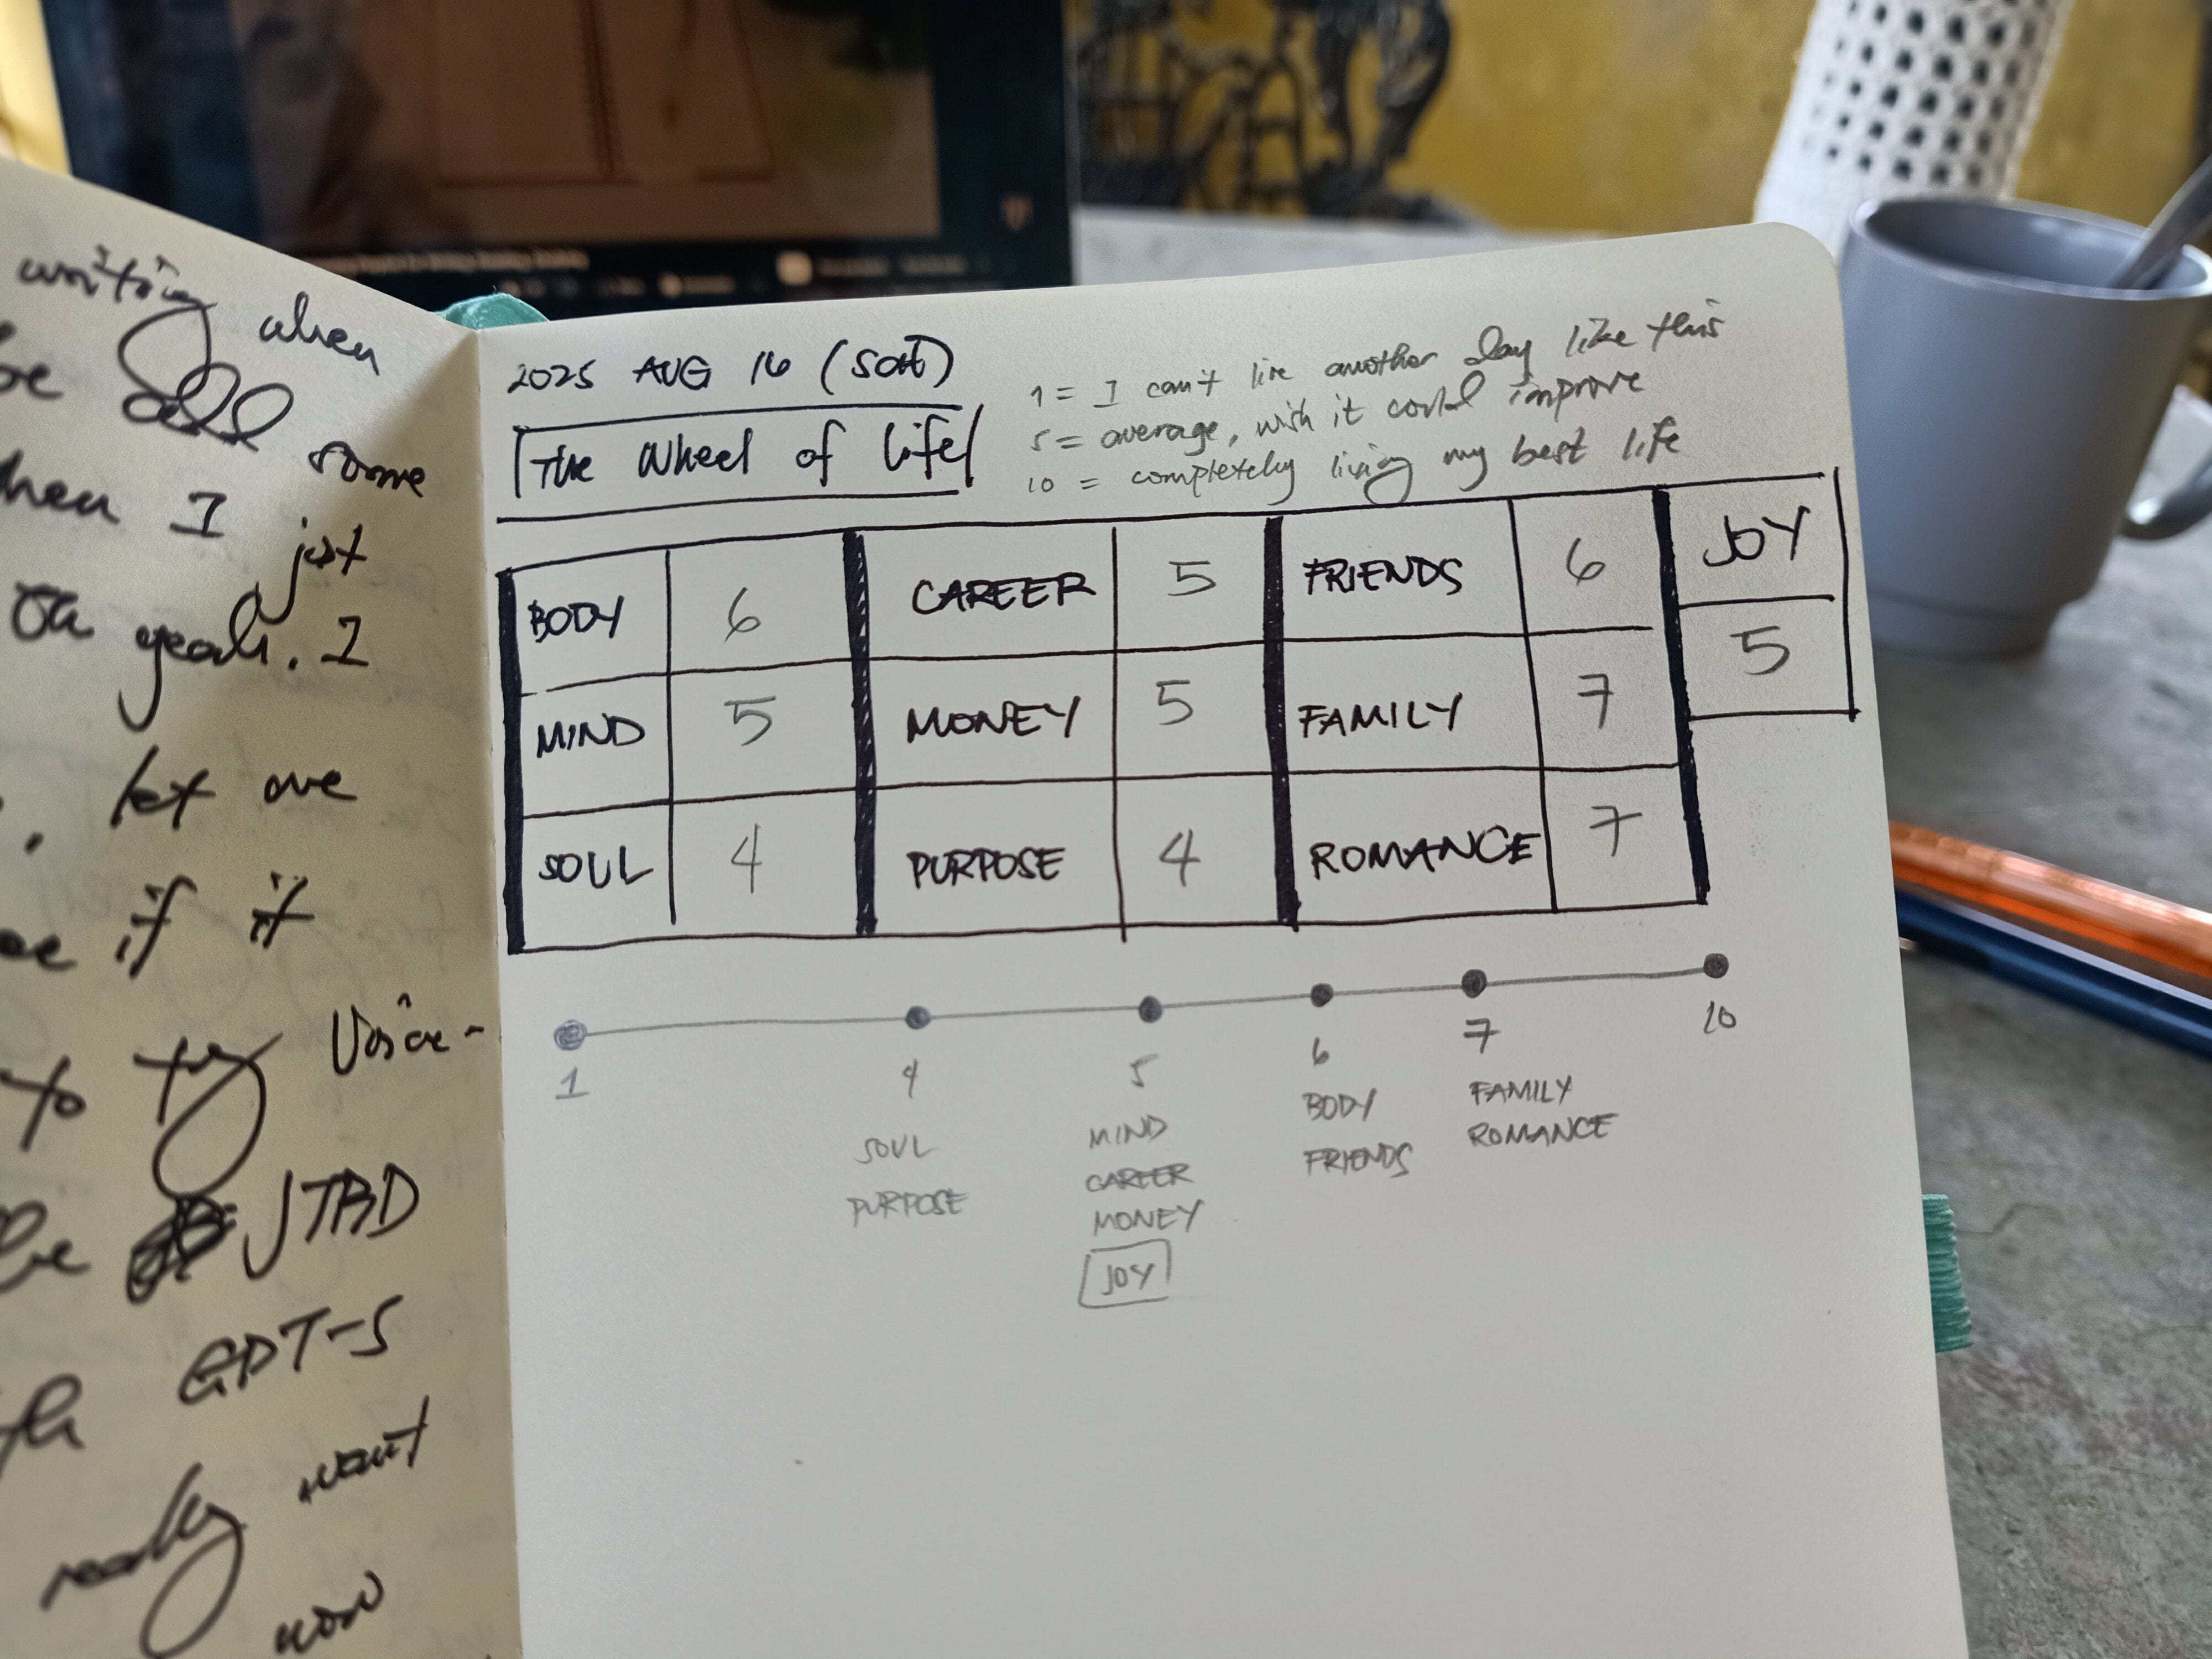 writing when
be all some
when I just
oh yeah. I
let me
if it
to try Voice-
the JTBD
GPT-5
really want
now
2025 AUG 16 (SAT)
The Wheel of Life
1 = I can't live another day like this
5 = average, wish it could improve
10 = completely living my best life
BODY 6 CAREER 5 FRIENDS 6 JOY
MIND 5 MONEY 5 FAMILY 7 5
SOUL 4 PURPOSE 4 ROMANCE 7
1 4 5 6 7 10
SOUL MIND BODY FAMILY
PURPOSE CAREER FRIENDS ROMANCE
MONEY
JOY